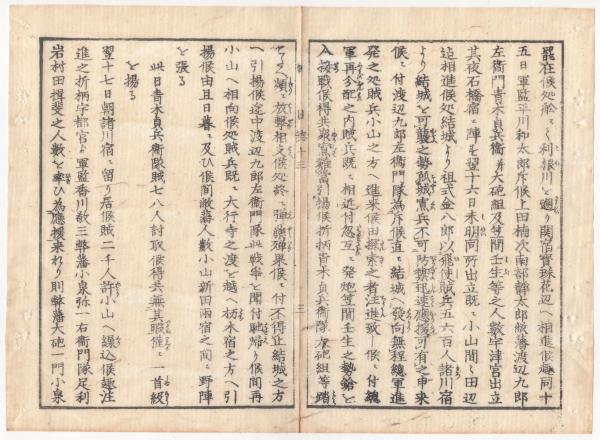 罷在候処舩ニ而利根川を廻り関宿宝珠花辺へ相進候趣同十
五日軍監平川和太郎斥候上田楠次南部静太郎敝藩渡辺九郎
左衛門青木貞兵衛并大砲組及笠間壬生等之人数宇津宮出立
其夜石橋宿ニ陣を構翌十六日未明同所出立既ニ小山間々田辺
迄相進候処結城より祖式金八郎以飛使賊兵五六百人諸川宿
より結城を可襲之勢孤城寡兵不可防禦迅速応援可有之申来
候ニ付渡辺九郎左衛門隊為斥候直ニ結城へ発向無程総軍進
発之処賊兵小山之方へ進来候由探索之者注進致し候ニ付総
軍再分配之内賊兵既ニ相近付忽互ニ発炮笠間壬生之勢鎗を
入接戦候得共敵寡難当引揚候折柄青木貞兵衛隊大砲組等踏
日誌十三
三
頻ニ放撃相支候処終ニ弾薬殫果候ニ付不得止結城之方
へ引揚候途中渡辺九郎左衛門隊此戦争を聞付馳帰り候間再
小山へ相向候処賊兵既ニ大行寺之渡を越へ栃木宿之方へ引
揚候由且日暮ニ及ひ候間敝藩人数小山新田両宿之間ニ野陣
を張る
此日青木貞兵衛隊賊七八人討取候得共無其暇僅ニ一首級
を揚る
翌十七日朝諸川宿ニ留り居候賊二千人許小山へ繰込候趣注
進之折柄宇都宮より軍監香川敬三敝藩小泉弥一右衛門隊足利
岩村田揖斐之人数を率ひ為応援来わり則敝藩大砲一門小泉